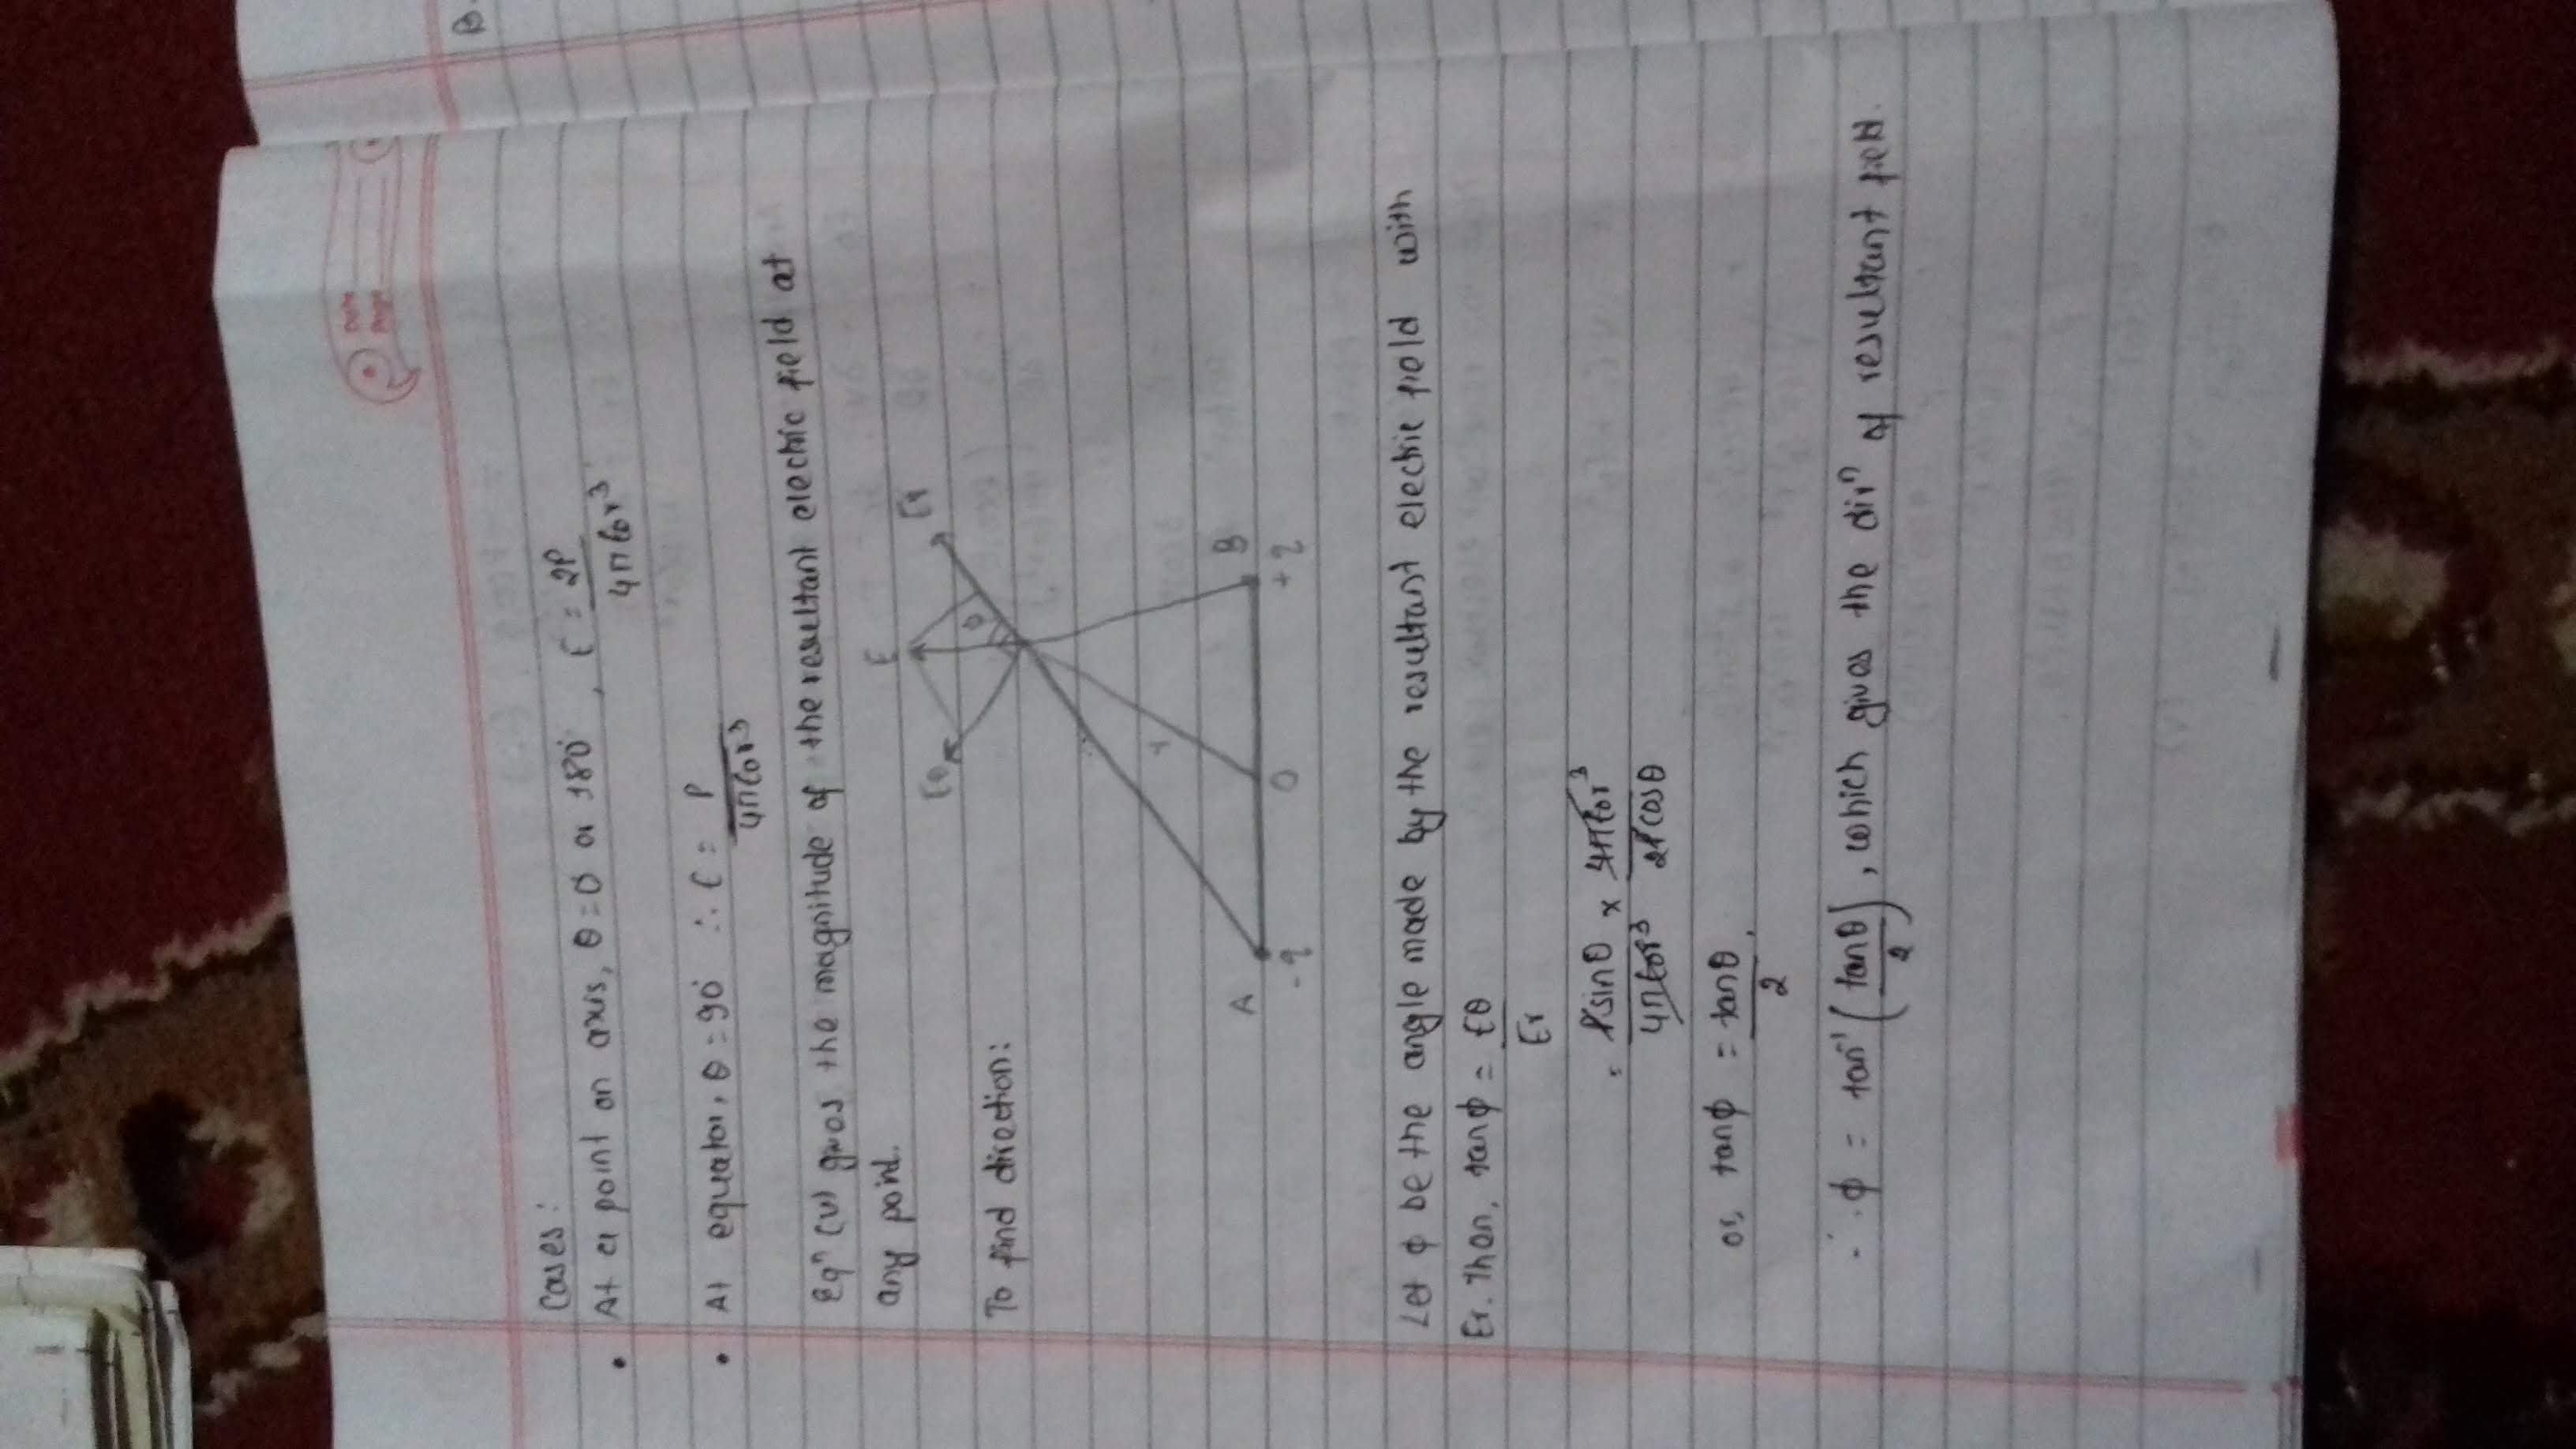 Date
Page
B.
Cases:
• At a point on axis, θ = 0° or 180°, E = 2P / 4πε₀r³
• At equator, θ = 90° ∴ E = P / 4πε₀r³
Eqⁿ (v) gives the magnitude of the resultant electric field at
any point.
E
Eθ Er
ϕ
To find direction:
r
A B
-q O +q
Let ϕ be the angle made by the resultant electric field with
Er. Then, tanϕ = Eθ / Er
= Psinθ / 4πε₀r³ × 4πε₀r³ / 2Pcosθ
or, tanϕ = tanθ / 2.
∴ ϕ = tan⁻¹ (tanθ / 2), which gives the dirⁿ of resultant field.